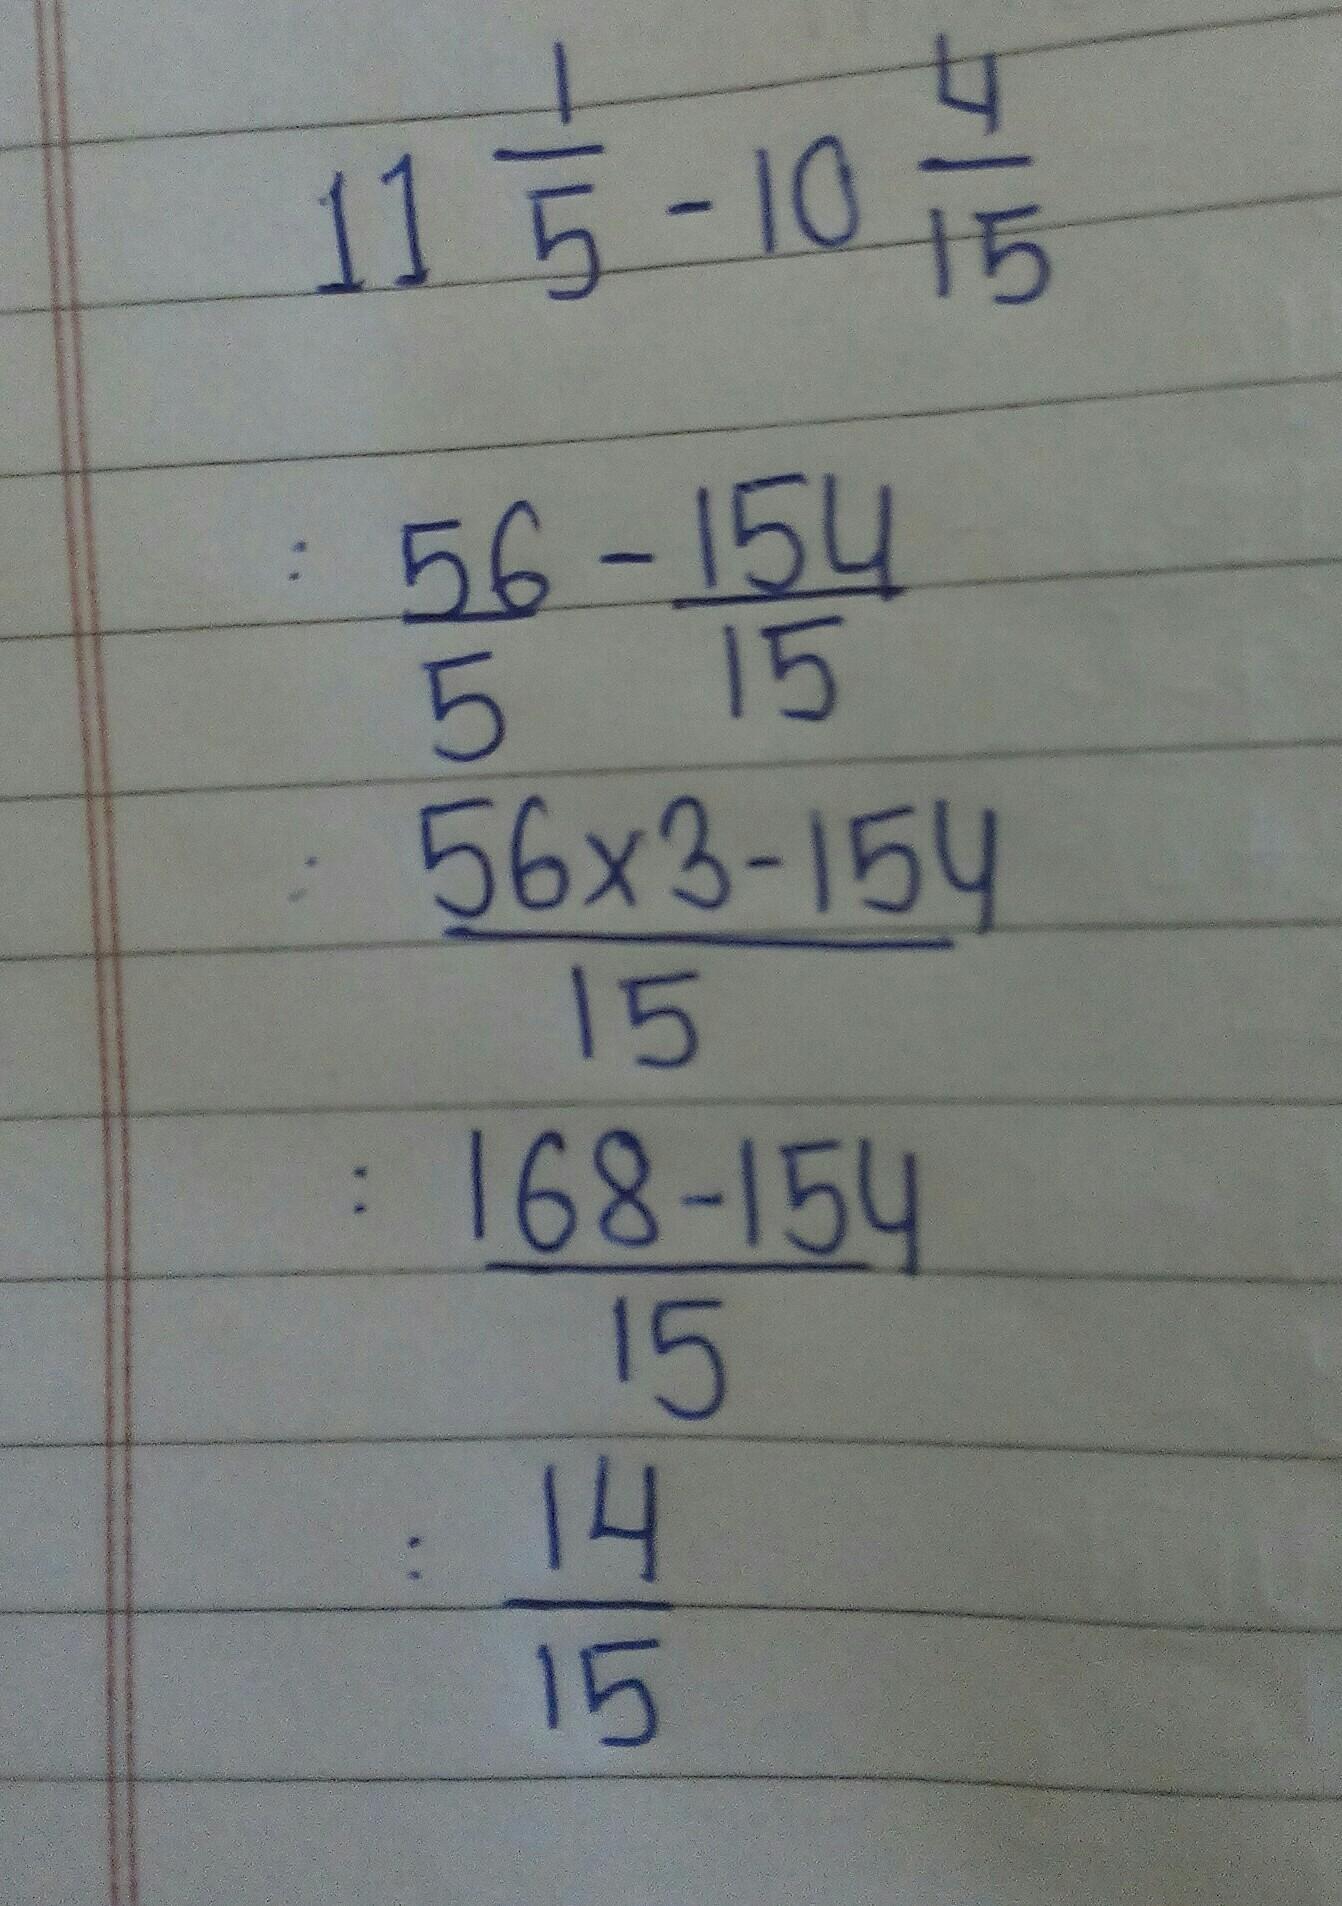 11 1/5 - 10 4/15
: 56/5 - 154/15
: 56x3-154/15
: 168-154/15
: 14/15